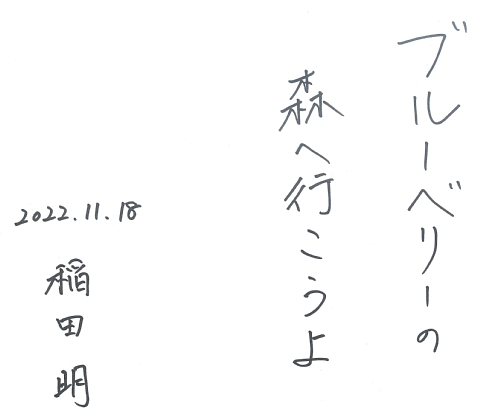 ブルーベリーの
森へ行こうよ
2022.11.18
稲田明